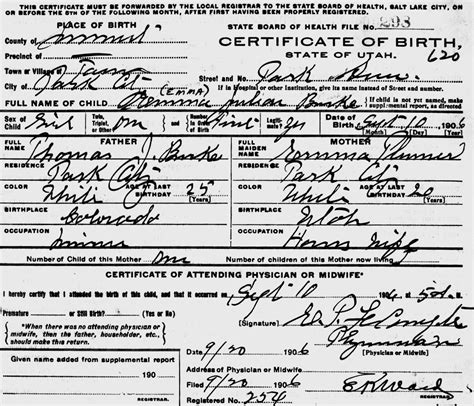 THIS CERTIFICATE MUST BE FORWARDED BY THE LOCAL REGISTRAR TO THE STATE BOARD OF HEALTH, SALT LAKE CITY, ON
OR BEFORE THE 5TH OF THE FOLLOWING MONTH, AFTER FIRST HAVING BEEN PROPERLY REGISTERED.
PLACE OF BIRTH
STATE BOARD OF HEALTH FILE No. 298
County of Summit
CERTIFICATE OF BIRTH,
Precinct of
STATE OF UTAH. 620
Town or Village of
City of Park City
Street and No. Park
If in Hospital or other Institution, give its name instead of Street and number.
(EMMA)
FULL NAME OF CHILD Julian Burke
If child is not named, make supplemental report, as directed
Sex of Child Girl
Twin, Triplet, or Other One
Number in Order of Birth First
Legitimate? Yes
Date of Birth Sept 10 1906
(Month) (Day) (Year)
FATHER
FULL NAME Thomas J. Burke
MOTHER
FULL MAIDEN NAME Emma
RESIDENCE Park City
RESIDENCE Park City
COLOR White
AGE AT LAST BIRTHDAY 25 (Years)
COLOR White
AGE AT LAST BIRTHDAY 20 (Years)
BIRTHPLACE Colorado
BIRTHPLACE Utah
OCCUPATION Miner
OCCUPATION House Wife
Number of Child of this Mother One
Number of children of this Mother now living
CERTIFICATE OF ATTENDING PHYSICIAN OR MIDWIFE*
I hereby certify that I attended the birth of this child, and that it occurred on Sept 10 190
Premature or Still Birth? (Yes or No)
(Signature) E. P.
*When there was no attending physician or midwife, then the father, householder, etc., should make this return.
(Physician or Midwife)
Given name added from supplemental report
190
Dated 9/20 1906
Address of Physician or Midwife
Filed 9/20 1906
E R Ward
REGISTRAR.
Registered No. 254
REGISTRAR.